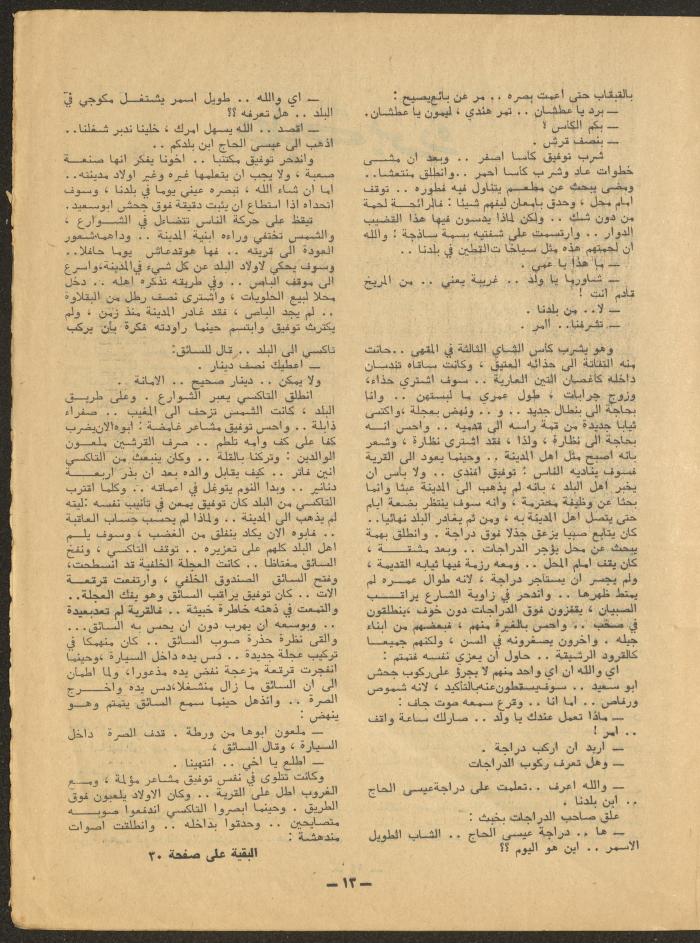 بالقبقاب حتى أعمت بصره .. مر عن بائع يصيح :
ـ برد يا عطشان .. تمر هندي ، ليمون يا عطشان.
ـ بكم الكاس ؟
ـ بنصف قرش .
شرب توفيق كاسا اصفر .. وبعد ان مشـى
خطوات عاد وشرب كاسا احمر ..وانطلق منتعشا..
ومضى يبحث عن مطعـم يتناول فيه فطوره .. توقف
امام محل ، وحدق بامعان ليفهم شيئا : فالرائحـة لحمة
من دون شك .. ولكن لماذا يدسون فيها هذا القضيب
الدوار .. وارتسمت على شفتيه بسمة ساذجة : والله
ان لحمتهم هذه مثل سياخ القطين في بلدنا ..
ـ ما هذا يا عمي .
ـ شاورما يا ولد .. غريبة يعني .. من المريخ
قادم انت !
ـ لا.. من بلدنا .
ـ تشرفنا.. امر .
وهو يشرب كاس الشاي الثالثة في المقهى ..حانت
منه التفاتة الى حذائه العتيق ، وكانت ساقاه تندسان
داخله كاغصان التين العارية .. سوف اشتري حذاء،
وزوج جرابات ، طول عمري ما لبستهن .. وانا
بحاجة الى بنطال جديد .. و .. ونهض بعجلة ،واكتسى
ثيابا جديدة من قمة راسه الى قدميه .. واحس انـه
بحاجة الى نظارة ، ولذا ، فقد اشترى نظارة ، وشعر
بانه اصبح مثل اهل المدينة .. وحينما يعود الى القرية
فسوف يناديه الناس : توفيق افندي .. ولا باس ان
يخبر اهل البلد ، بانه لم يذهب الى المدينة عبثا وانما
بحثا عن وظيفة محترمة ، وانه سوف ينتظر بضعة ايام
حتى يتصل اهل المدينة به ، ومن ثم يغادر البلد نهائيا..
كان يتابع صبيا يزعق جذلا فوق دراجة . وانطلق بهمة
يبحث عن محل يؤجر الدراجات .. وبعد مشقـة ،
كان يقف امام المحل .. ومعه رزمة فيها ثيابه القديمة ،
ولم يجسر ان يستاجر دراجة ، لانه طوال عمـره لم
يمتط ظهرها .. واندحر في زاوية الشارع يراقـب
الصبيان ، يقفزون فوق الدراجات دون خوف ،ينطلقون
في صخب .. واحس بالغيرة منهم ، فبعضهم من ابناء
جيله . واخرون يصغرونه في السن ، ولكنهم جميعـا
كالقرود الرشيقة .. حاول ان يعزي نفسه فتمتم :
اي والله ان اي واحد منهم لا يجرؤ على ركوب جحش
ابو سعيد .. سوف يسقطون عنه بالتأكيد ، لانه شموص
ورفاص .. اما انا .. وقرع سمعه صوت جاف :
ـ ماذا تعمل عندك يا ولد .. صارلك ساعة واقف
.. امر !
ـ اريد ان اركب دراجة .
ـ وهل تعرف ركوب الدراجات
ـ والله اعرف ..تعلمت على دراجة عيسى الحاج
.. ابن بلدنا ،
علق صاحب الدراجات بخبث :
ـ ها .. دراجة عيسى الحاج .. الشاب الطويل
الاسمر .. اين هو اليوم ؟؟
ـ اي والله .. طويل اسمر يشتغـل مكوجي في
البلد .. هل تعرفه ؟؟
ـ اقصد .. الله يسهل امرك ، خلينا ندبر شغلنا..
اذهب الى عيسى الحاج ابن بلدكم ..
واندحر توفيق مكتئبا .. اخونا يفكر انها صنعـة
صعبة ، ولا يجب ان يتعلمها غيره وغير اولاد مدينته..
اما ان شاء الله ، نبصره عيني يوما في بلدنا ، وسوف
اتحداه اذا استطاع ان يثبت دقيقة فوق جحش ابوسعيد.
تيقظ على حركة الناس تتضاءل في الشـوارع ،
والشمس تختفي وراءه ابنية المدينة .. وداهمه شعور
العودة الى قريته .. فها هو قد عاش يوما حافلا..
وسوف يحكي لاولاد البلد عن كل شيء في المدينة،واسرع
الى موقف الباص .. وفي طريقه تذكره اهله .. دخل
محلا لبيع الحلويات ، واشترى نصف رطل من البقلاوة
.. لم يجد الباص ، فقد غادر المدينة منذ زمن ، ولم
يكترث توفيق وابتسم حينما راودته فكرة بان يركب
تاكسي الى البلد .. قال للسائق:
ـ اعطيك نصف دينار .
ولا يمكن .. دينار صحيح .. الامانة .
انطلق التاكسي يعبر الشوارع . وعلى طريـق
البلد ، كانت الشمس تزحف الى المغيب .. صفراء
ذابلة .. واحس توفيق مشاعر غامضة : ابوه الان يضرب
كفا على كف وامه تلطم .. صرف القرشين ملعـون
الوالدين : وتركنا بالقلة .. وكان ينبعث من التاكسي
انين فاتر .. كيف يقابل والده بعد ان بذر اربعـة
دنانير .. وبدا النوم يتوغل في اعماقه .. وكلما اقترب
التاكسي من البلد كان توفيق يمعن في تأنيب نفسه :ليته
لم يذهب الى المدينة .. ولماذا لم يحسب حساب العاقبة
.. فابوه الان يكاد ينفلق من الغضب ، وسوف يلـم
اهل البلد كلهم على تعزيره .. توقف التاكسي ، ونفخ
السائق مغتاظا .. كانت العجلة الخلفية قد انسطحت،
وفتح السائق الصندوق الخلفي ، وارتفعت قرقعـة
الات .. كان توفيق يراقب السائق وهو يفك العجلة..
والتمعت في ذهنه خاطرة خبيثة .. فالقرية لم تعد بعيدة
.. وبوسعه ان يهرب دون ان يحس به السائق...
والقى نظرة حذرة صوب السائق .. كان منهمكا في
تركيب عجلة جديدة .. دس يده داخل السيارة ،وحينما
انفجرت قرقعة مزعجة نفض يده مذعورا، ولما اطمان
الى ان السائق ما زال منشغلا،دس يده واخـرج
الصرة .. وانذهل حينما سمع السائق يتمتم وهـو
ينهض :
ـ ملعون ابوها من ورطة . قذف الصرة داخل
السيارة ، وقال السائق ،
ـ اطلع يا اخي .. انتهينا .
وكانت تتلوى في نفس توفيق مشاعر مؤلمة ، ومـع
الغروب اطل على القرية .. وكان الاولاد يلعبون فوق
الطريق . وحينما ابصروا التاكسي اندفعوا صوبـه
متصايحين .. وحدقوا بداخله .. وانطلقت اصوات
مندهشة :
البقية على صفحة ٣٠
ـ ١٣ ـ